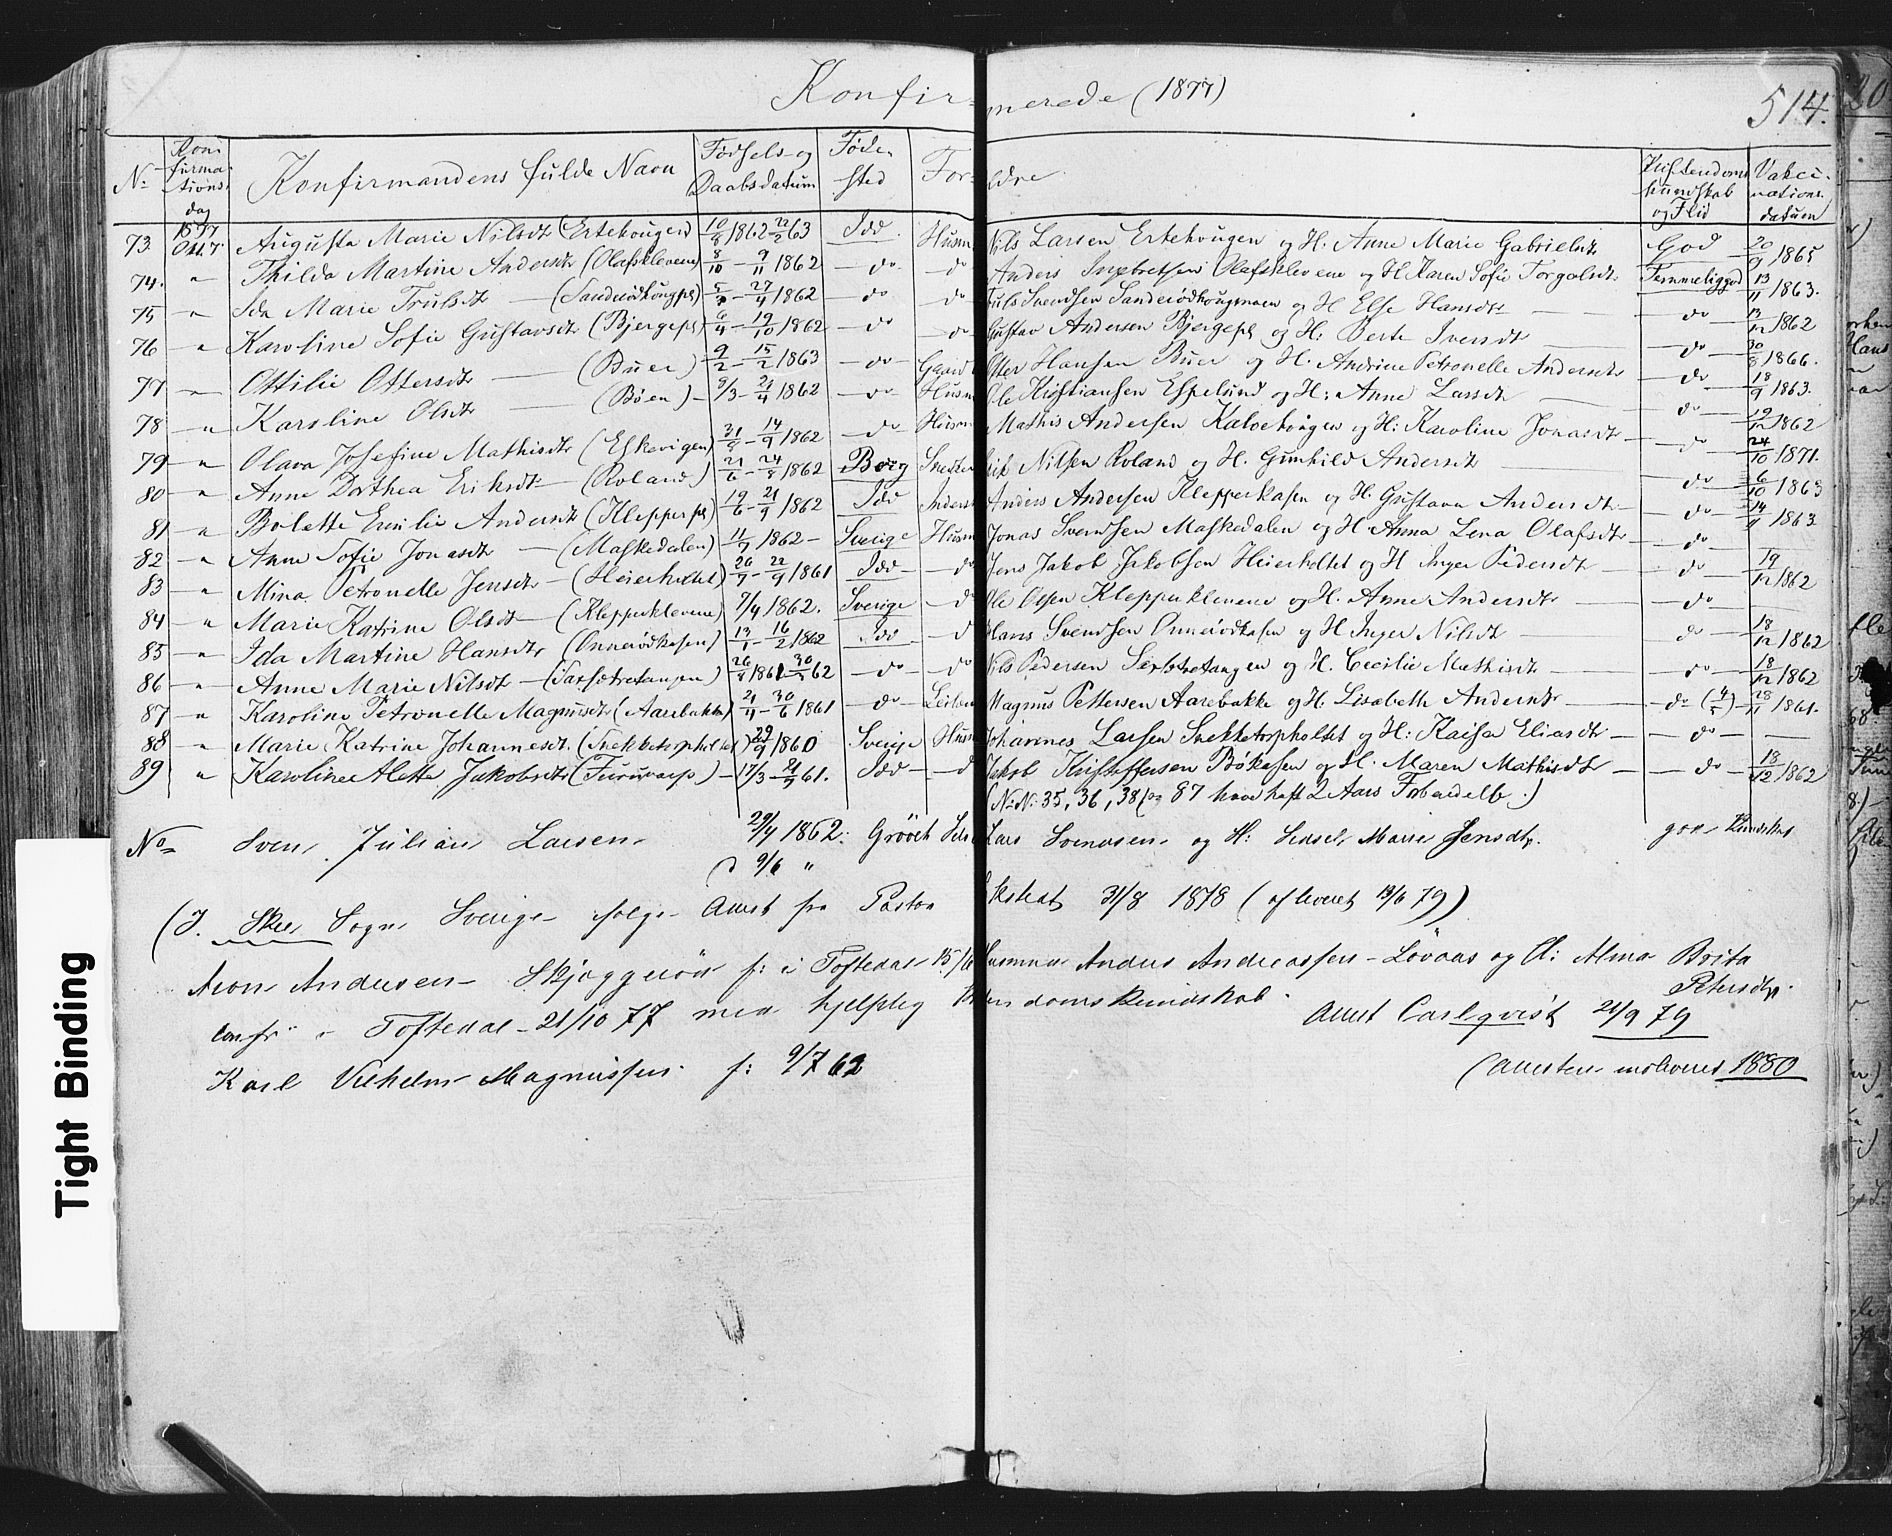 Konfir- merede (1877)
514.
No Konfirmations dag Konfirmandens fulde Navn Fødsels og Daabsdatum Føde-sted For- ldre Kristendoms kundskab og Flid Vakcinations datum
73. 1877 Okt. 7. Augusta Marie Nilsdt (Ertehougen) 10/8 1862 22/2 63 Idd Husm Nils Larsen Ertehougen og H. Anne Marie Gabrielsdt God 20/9 1865
74. " Thilda Martine Andersdt (Olafsklevene) 8/10 - 9/11 1862 do do Anders Olafsklevene og H. Karen Sofie Torgalsdt Temmelig god 13/11 1863.
75 " Ida Marie Trulsdt (Sanderödhougpl) 5/3 - 27/4 1862 do do Truls Svendsen og H. Else Hansdt do 13/12 1862
76 " Karoline Sofie Gustavsdt (Bjergepl) 6/4 - 19/10 1862 do Gustav Andersen Bjergepl og H: Berte Iversdt do 30/8 1866.
77 " Ottilie Ottersdt (Buer) 9/2 - 15/2 1863 do Gaard Otter Hansen Buer og H. Andrine Petronelle Andersdt do 18/9 1863.
78 " Karoline Olsdt (Böen) 8/3 - 21/4 1862 do Husm Ole Kristiansen Espelund og H: Anne Larsdt do 19/12 1862
79 " Olava Josefine Mathisdt (Eskevigen) 31/8 - 14/9 1862 do Husm Mathis Andersen Kalvehougen og H: Karoline Jonasdt do 24/10 1871.
80 " Anne Dorthea Eriksdt (Roland) 21/6 - 24/8 1862 Borg Snedker Erik Nilsen Roland og H. Gunhild Andersdt do 6/10 1863
81 " Bolette Emilie Andersdt (Klepperpl) 19/6 - 21/9 1862 Idd Inderst Anders Andersen Klepperkasen og H. Gustava Andersdt do 14/11 1863.
82 " Anne Sofie Jonasdt (Maskedalen) 11/7 1862 Sverige Husm Jonas Svendsen Maskedalen og H Anna Lena Olafsdt do
83 " Mina Petronelle Jensdt (Heierholtet) 26/7 - 22/9 1861 Idd do Jens Jakob Jakobsen Heierholtet og H Inger Pedersdt do 19/12 1862
84 " Marie Katrine Olsdt (Klepperklevene) 7/4 1862. Sverige do Ole Olsen Klepperklevene og H. Anne Andersdt do
85 " Ida Martine Hansdt (Onneiödkasen) 13/1 - 16/2 1862 Idd do Hans Svendsen Onneiödkasen og H. Inger Nilsdt do 18/12 1862
86 " Anne Marie Nilsdt 26/ 1861 30/ 62 do do Nils Pedersen og H. Cecilie Mathisdt do 18/12 1862
87 " Karoline Petronelle Magnusdt (Aarebakke) 21/4 - 30/6 1861 do Magnus Pettersen Aarebakke og H. Lisabeth Andersdt do 28/11 1861.
88 " Marie Katrine Johannesdt. (Snekketorpholtet) 29/9 1860 Sverige Husm Johannes Larsen Snekketorpholtet og H: Kaisa Eliasdt do
89 " Karoline Alette Jakobsdt (Furuvarp) 17/3 - 21/ 61. Idd do Jakob Kristoffersen Bökasen og H. Maren Mathisdt do 18/12 1862
(No No 35, 36, 38 og 87 have havt 2 Aars Forberedelse.)
No Sven Julian Larsen 29/4 1862. Lars Svendsen og H: Marie Jensdtr. god Kundskab
d 9/6 "
(I. Skee Sogn Sverige ifølge Attest fra Pastor Ekstedt 31/8 1878 (afleveret 13/6 79)
Aron Andersen f: i Töftedal 15/6 Husmand Anders Andreassen Lövaas og H: Alma Brita Petersdtr.
confr. i Töftedal 21/10 77 med hjelplig Kristendomskundskab. Attest Carlqvist 21/9 79
Karl Vilhelm Magnussen f: 9/7 62 (Attesten indleveret 1880
Tight Binding